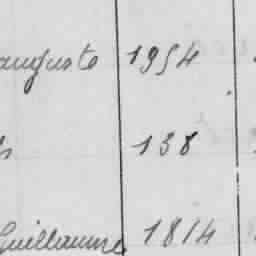 auguste 1954
138
Guillaume 1814